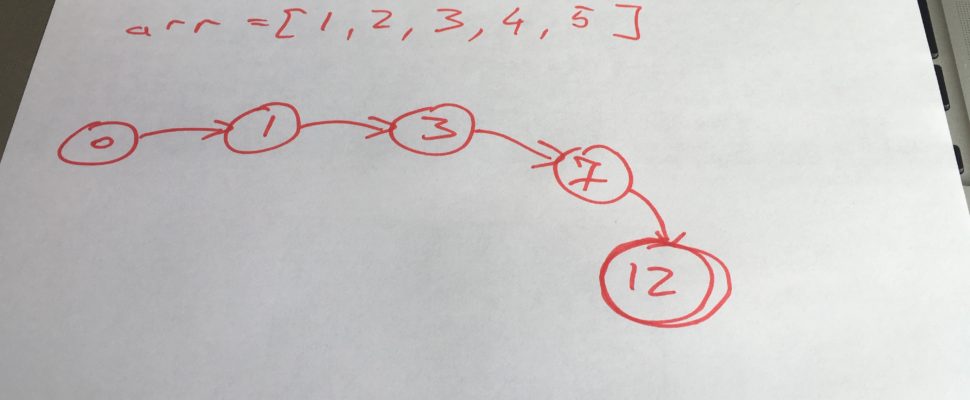 arr = [1, 2, 3, 4, 5]
0 1 3 7
12